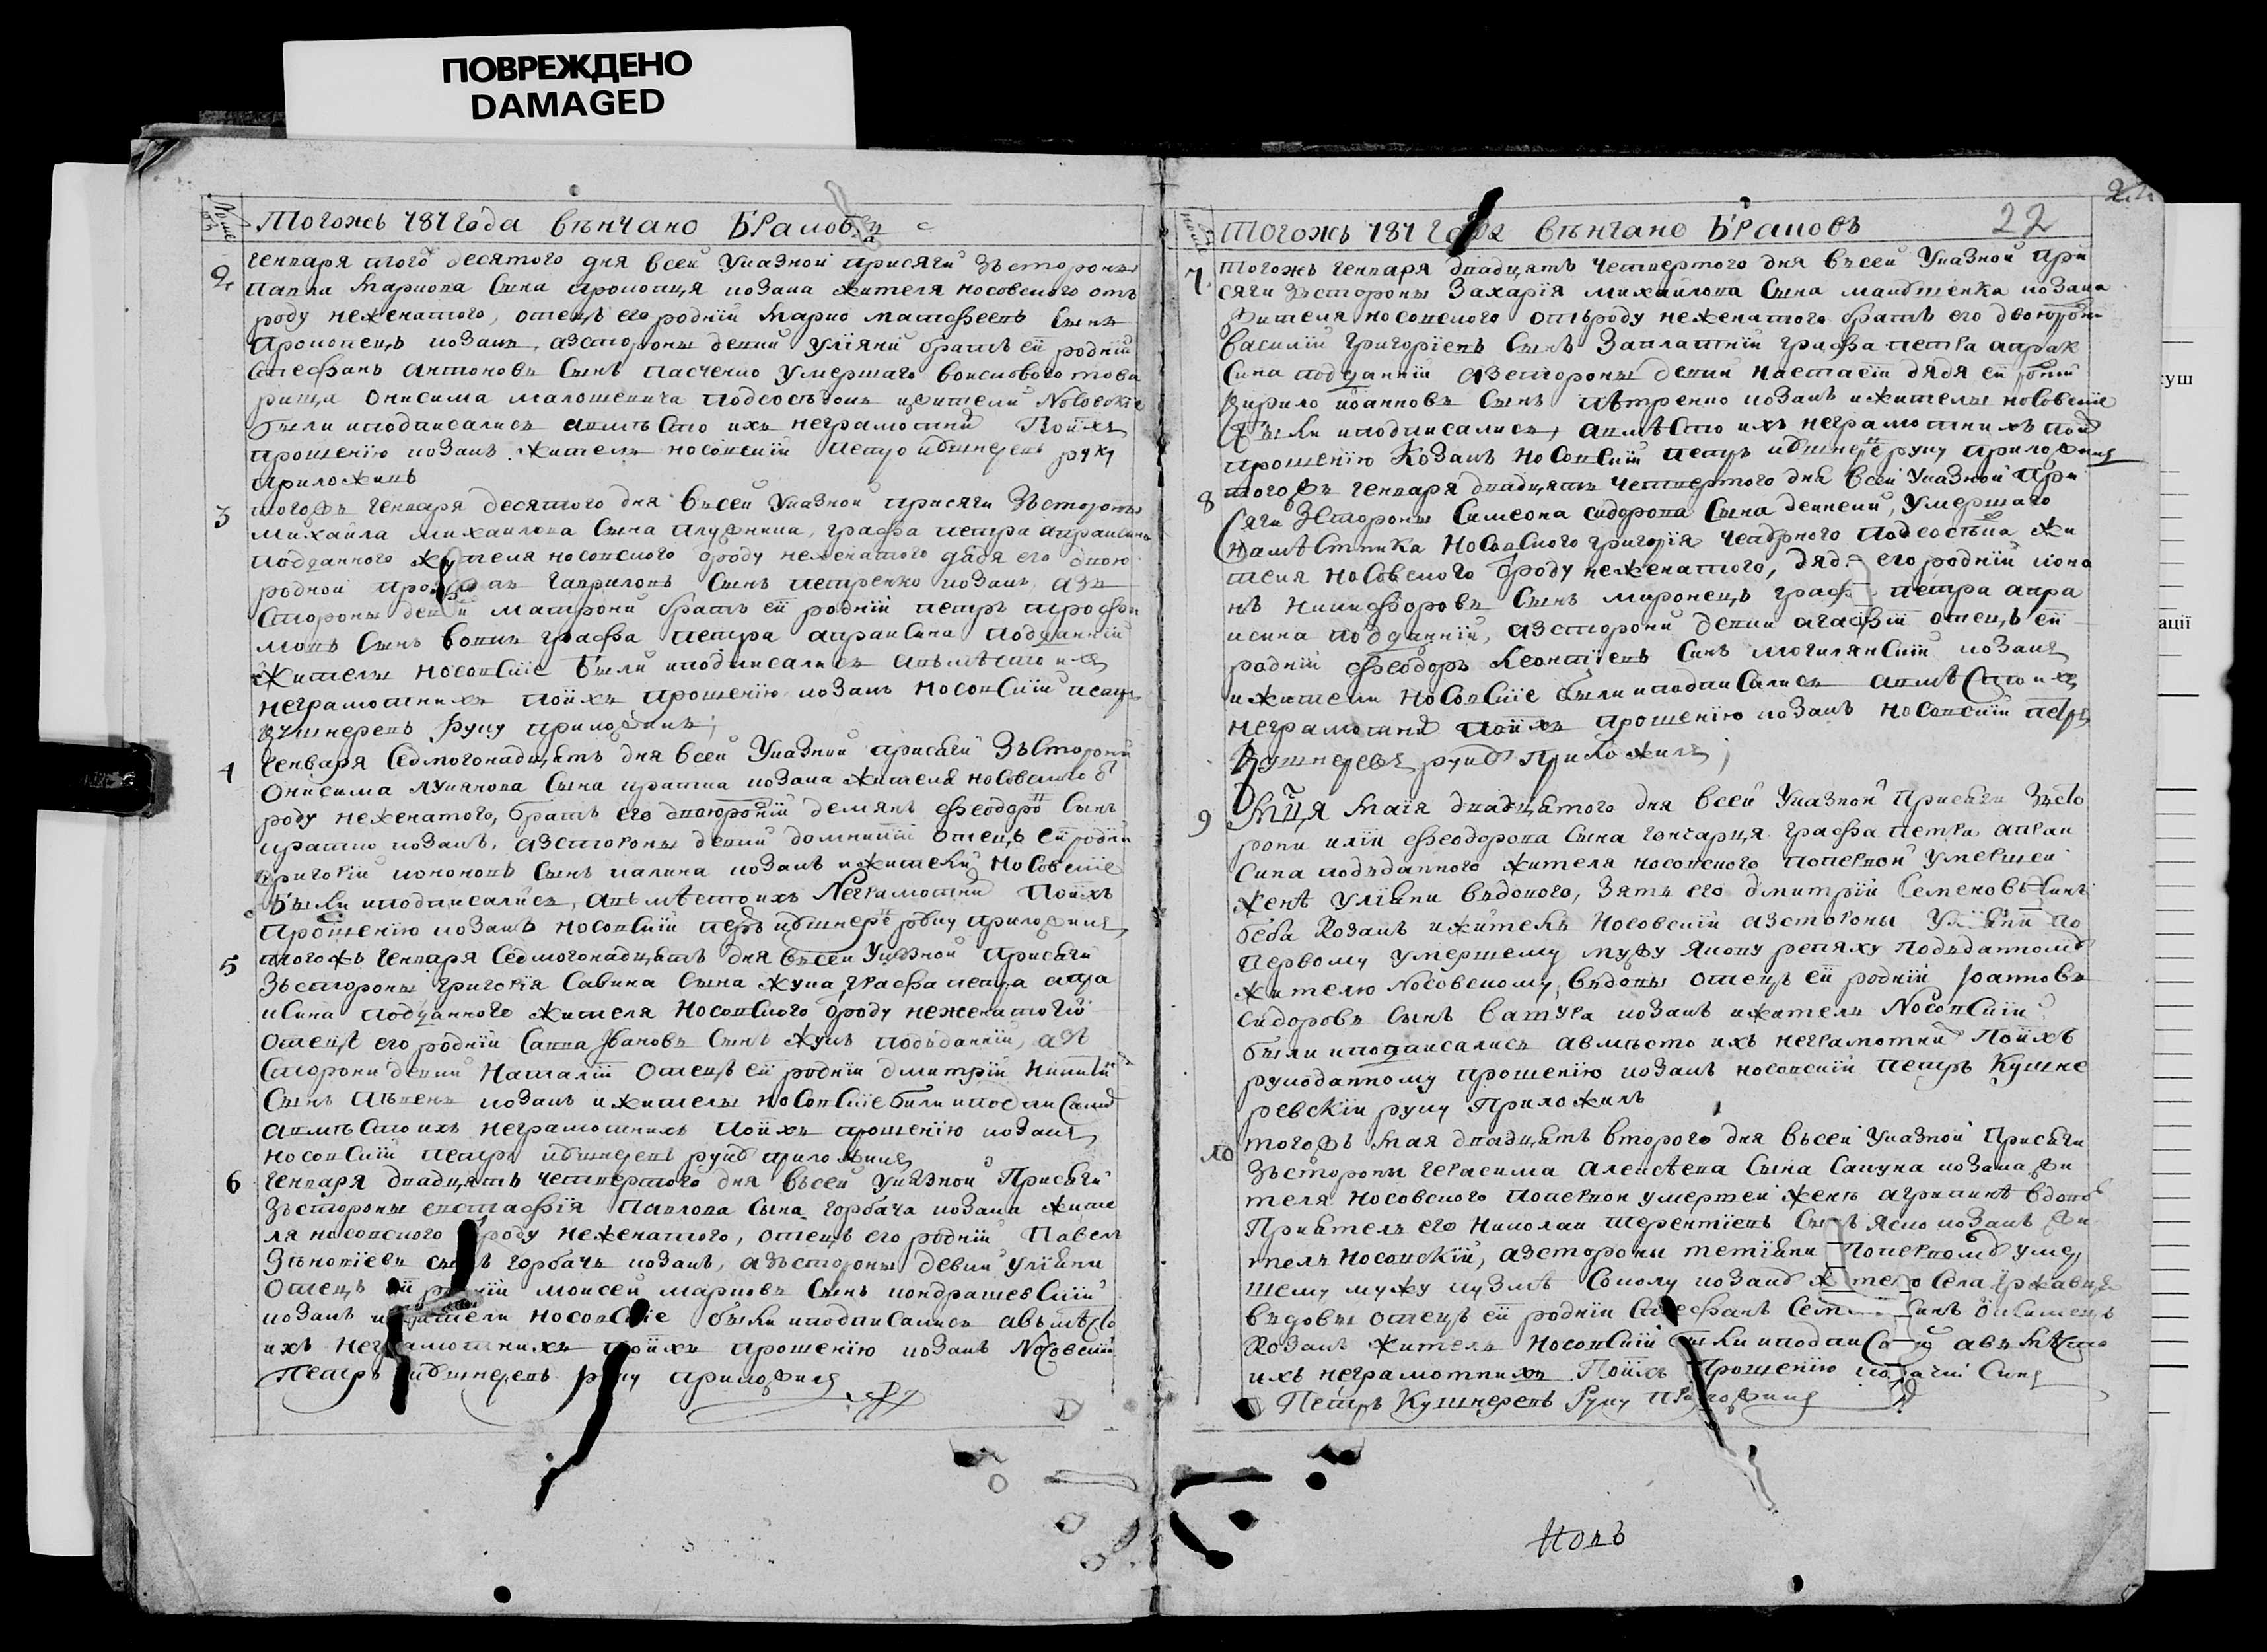 ПОВРЕЖДЕНО
DAMAGED
Тогожъ 1781 года вѣнчано Браковъ
2
Генваря того десятого дня всей Указной присяги зъстороны
Павла Маркова Сына Прокопця козака жителя носовского отъ
роду неженатого, отецъ его родній Марко Матофеевъ Сынъ
Прокопецъ козакъ, азстороны девки Уліяни братъ ей родній
Стефанъ Антоновъ Сынъ Пасченко умершаго воискового това
рища Онисима Малошевича подсосѣдокъ ижители Носовскіе
были иподписались авмѣсто ихъ неграмотній Поихъ
прошенію козакъ житель носовскій Петро Кушнеревъ руку
приложивъ
3
тогожъ Генваря десятого дня Въсей Указной присяги Зъстороны
Михаила Михаилова Сына Плужника, графа петра апраксина
подданного жителя носовского ѿроду неженатого дядя его двою
родной Гавриловъ Сынъ петренко козакъ азъ
Стороны девки матрони братъ ей родній петръ трофи
мовъ Сынъ Вовкъ графа петра апраксина подданній
ижители носовскіе были иподписались авъмѣсто ихъ
неграмотнихъ поихъ прошенію козакъ носовскій петръ
Кушнеревъ руку приложилъ;
4
Генваря Седмогонадцять дня всей Указной присяги Зъстороны
Онисима Лукянова Сына кратка козака жителя носовского ѿ
роду неженатого, братъ его двоюродній демянъ Феодоровъ Сынъ
кратко козакъ, азстороны девки домникіи отецъ ей родній
Григорій кононовъ Сынъ калина козакъ ижители носовскіе
были иподписались, авъмѣсто ихъ Неграмотній Поихъ
прошенію козакъ носовскій петръ кушнеревъ руку приложилъ
5
тогожъ Генваря Седмогонадцять дня въсей Указной Присяги
Зъстороны Григорія Савина Сына Жука, графа петра апра
ксина подданного жителя носовского ѿроду неженатого
отецъ его родній Савва Івановъ Сынъ Жукъ подъданній, азъ
Стороны девки Наталіи отецъ ей родній дмитрій
Сынъ козакъ ижители носовскіе были иподписались
авмѣсто ихъ неграмотнихъ поихъ прошенію козакъ
носовскій петръ кушнеревъ руку приложилъ
6
Генваря двадцять четвертого дня въсей Указной Присяги
Зъстороны евстафія Павлова Сына горбача козака жите
ля носовского ѿроду неженатого, отецъ его родній Павелъ
Зѣновіевъ сынъ горбачъ козакъ, азъстороны девки уліяни
отецъ ей родній моисей марковъ Сынъ кондрашевскій
козакъ ижители носовскіе были иподписались авъмѣсто
ихъ неграмотнихъ поихъ прошенію козакъ Носовскій
Петръ кушнеревъ руку приложилъ
22
Тогожъ 1781 года вѣнчано Браковъ
7
тогожъ Генваря двадцять четвертого дня въсей Указной при
сяги зъстороны Захарія михаилова Сына козака
жителя носовского отъроду неженатого братъ его двоюродній
Василій Григоріевъ Сынъ Заплатній графа петра апрак
Сина подданній азстороны девки настасіи дядя ей родній
Кирило іоанновъ Сынъ пѣтренко козакъ ижители носовскіе
были иподписались, авмѣсто ихъ неграмотнихъ поих
прошенію Козакъ носовскій петръ кушнеревъ руку приложилъ
8
тогожъ генваря двадцять четвертого дня всей Указной При
сяги Зстороны Симеона сидорова Сына деинеки, умершаго
намѣстника носовского григорія подсосѣдка жи
теля носовского ѿроду неженатого, дядя его родній коно
нъ никифоровъ Сынъ миронецъ графа петра апра
ксина подданній, азстороны девки агафіи отецъ ей
родній Феодоръ леонтіевъ Синъ могилянскій козакъ
ижители носовскіе были иподписались авмѣсто ихъ
неграмотній поихъ прошенію козакъ носовскій петръ
Кушнеревъ руку Приложилъ;
9
Мця Маія двадцятого дня всей Указной Присяги Зъсто
рони иліи Феодорова Сына гончарця графа петра апрак
Сина подъданного жителя носовского поперной умершей
женѣ Уліяни въдового, Зять его дмитрій Семеновъ Синъ
беба козакъ ижитель Носовскій азстороны Уліяни по
первому умершему мужу Якову репяху подъданному
жителю Носовскому, въдовы отецъ ей родній Іоанновъ
Сидоровъ Сынъ Ватура козакъ ижитель Носовскій
были иподписались авмѣсто ихъ неграмотній Поихъ
рукоданному прошенію козакъ носовскій петръ Кушне
ревскій руку Приложилъ
10
тогожъ Мая двадцять второго дня въсей Указной Присяги
Зъстороны герасима алексѣева Сына Сапуна козака жи
теля носовского поперной умершей женѣ агрипинѣ вдового
Приятель его николаи терентіевъ Сынъ Яско козакъ жи
тель носовскій, азстороны тетіяни поперному умер
шему мужу кузмѣ Соколу козаку жителю Села Ржавця
въдовы отецъ ей родній Стефанъ Синъ
козакъ житель носовскій были иподписались авъмѣсто
ихъ неграмотнихъ Поихъ Прошенію козачій Синъ
Петръ Кушнеревъ Руку Приложилъ